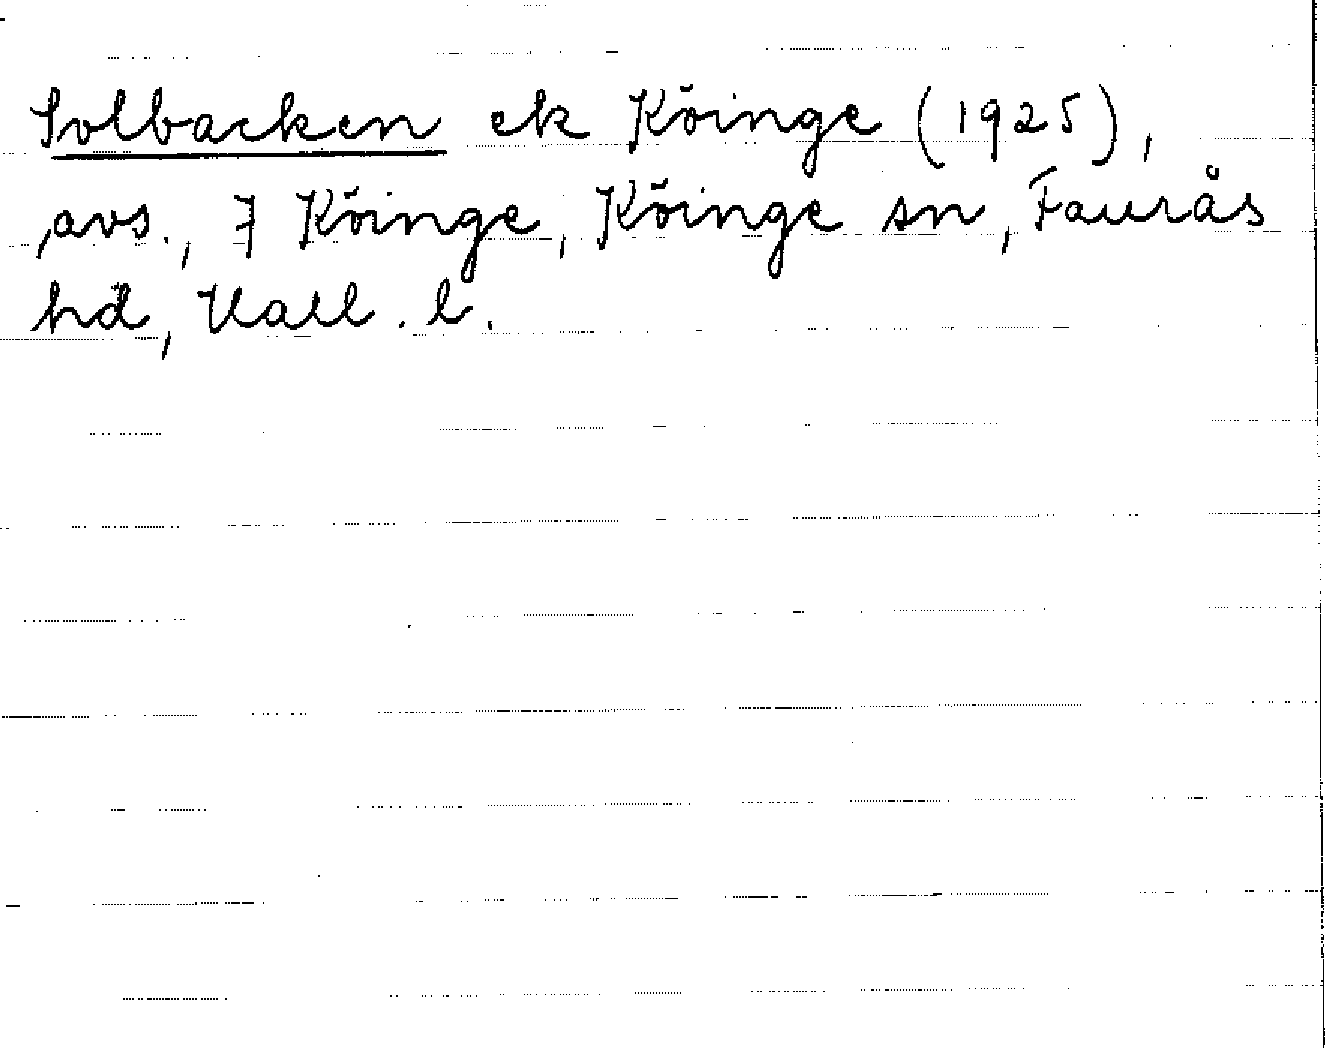 Solbacken ek Köinge (1925),
avs., 7 Köinge, Köinge sn, Faurås
hd, Hall. l.